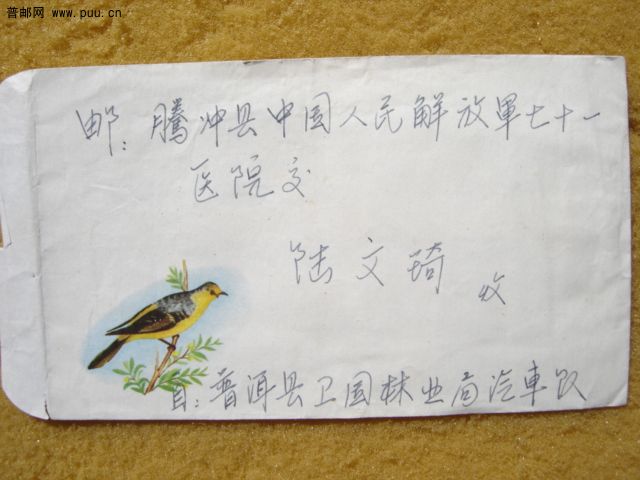 普邮网 www.puu.cn
邮：腾冲县中国人民解放軍七十一
医院交
陆文琦 收
自：普洱县卫国林业局汽車队